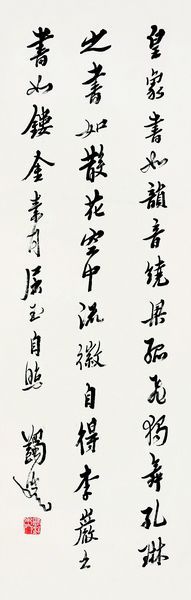 皇象書如韻音繞梁孤飛獨舞孔琳
之書如散花空中流徽自得李巖之
書如鏤金素月屈玉自照